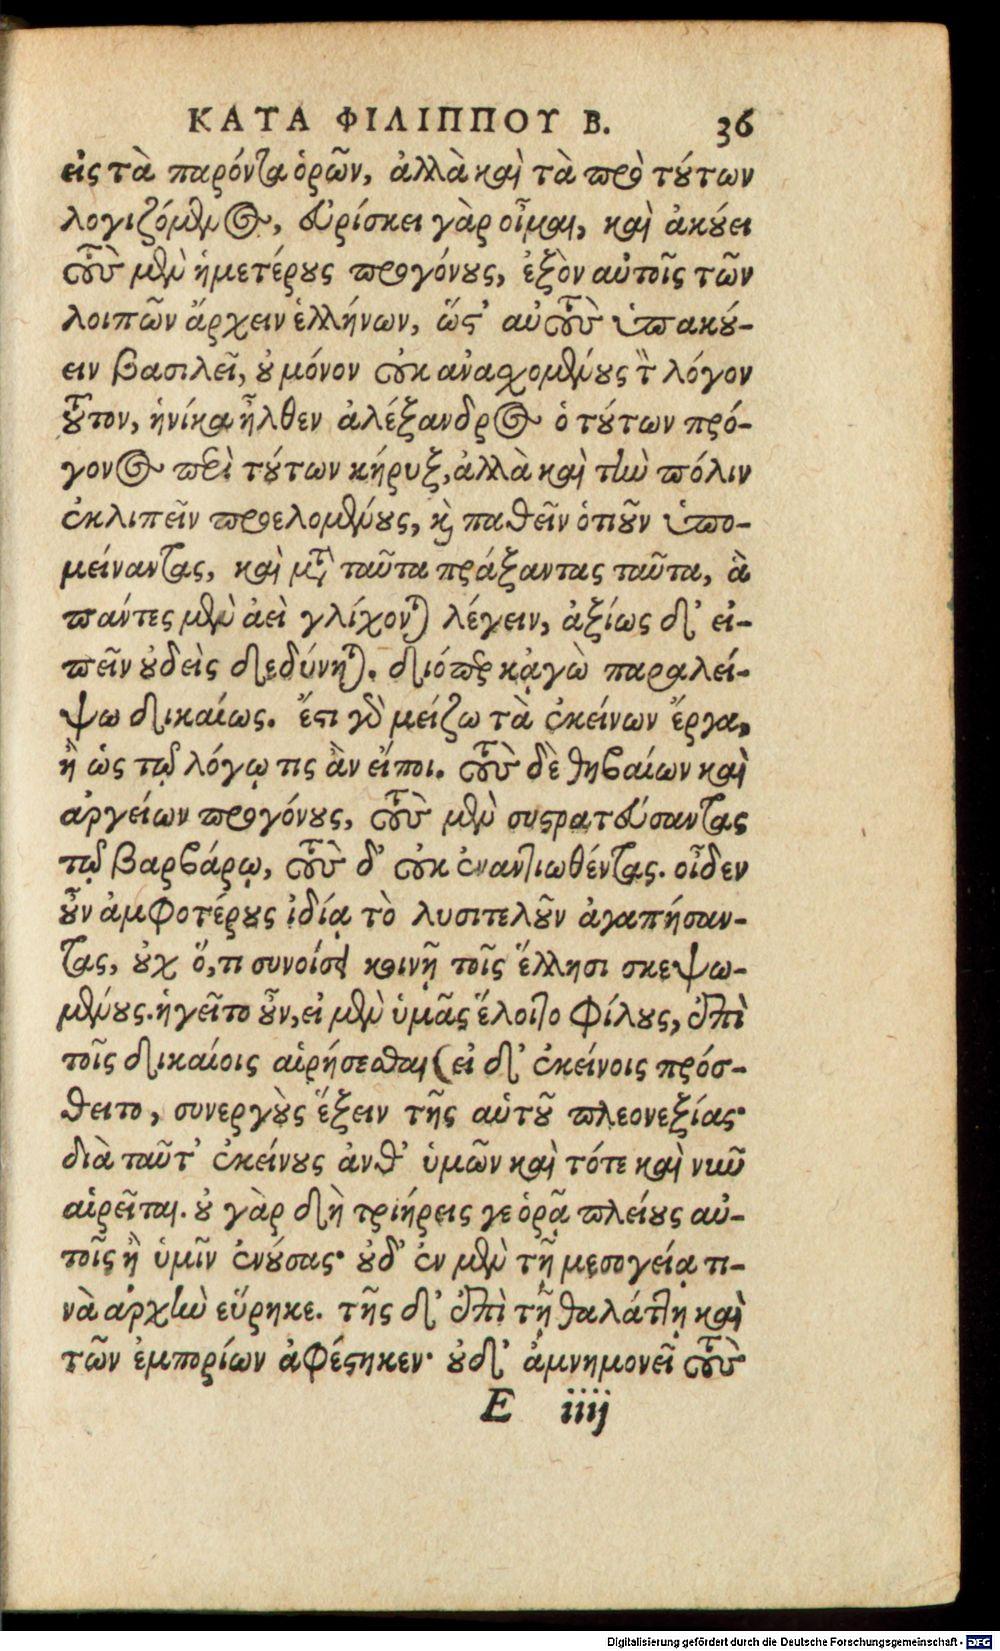 ΚΑΤΑ ΦΙΛΙΠΠΟΥ Β. 36
εἰς τὰ παρόντα ὁρῶν, ἀλλὰ καὶ τὰ πρὸ τούτων
λογιζόμενος, εὑρίσκει γὰρ οἶμαι, καὶ ἀκούει
τοὺς μὲν ἡμετέρους προγόνους, ἐξὸν αὐτοῖς τῶν
λοιπῶν ἄρχειν ἑλλήνων, ὥστ' αὐτοὺς ὑπακού-
ειν βασιλεῖ, οὐ μόνον οὐκ ἀνασχομένους τὸν λόγον
τοῦτον, ἡνίκα ἦλθεν ἀλέξανδρος ὁ τούτων πρό-
γονος περὶ τούτων κήρυξ, ἀλλὰ καὶ τὴν πόλιν
ἐκλιπεῖν προελομένους, καὶ παθεῖν ὁτιοῦν ὑπο-
μείναντας, καὶ μετὰ ταῦτα πράξαντας ταῦτα, ἃ
πάντες μὲν ἀεὶ γλίχονται λέγειν, ἀξίως δ' εἰ-
πεῖν οὐδεὶς δεδύνηται. διόπερ κἀγὼ παραλεί-
ψω δικαίως. ἔστι γὰρ μείζω τὰ ἐκείνων ἔργα,
ἢ ὡς τῷ λόγῳ τις ἂν εἴποι. τοὺς δὲ θηβαίων καὶ
ἀργείων προγόνους, τοὺς μὲν συστρατεύσαντας
τῷ βαρβάρῳ, τοὺς δ' οὐκ ἐναντιωθέντας. οἶδεν
οὖν ἀμφοτέρους ἰδίᾳ τὸ λυσιτελοῦν ἀγαπήσαν-
τας, οὐχ ὅ,τι συνοίσει κοινῇ τοῖς ἕλλησι σκεψω-
μένους. ἡγεῖτο οὖν, εἰ μὲν ὑμᾶς ἕλοιτο φίλους, ἐπὶ
τοῖς δικαίοις αἱρήσεσθαι (εἰ δ' ἐκείνοις πρόσ-
θειτο, συνεργοὺς ἕξειν τῆς αὑτοῦ πλεονεξίας·
διὰ ταῦτ' ἐκείνους ἀνθ' ὑμῶν καὶ τότε καὶ νῦν
αἱρεῖται. οὐ γὰρ δὴ τριήρεις γε ὁρᾷ πλείους αὐ-
τοῖς ἢ ὑμῖν ἐνούσας· οὐδ' ἐν μὲν τῇ μεσογείᾳ τι-
νὰ ἀρχὴν εὕρηκε. τῆς δ' ἐπὶ τῇ θαλάττῃ καὶ
τῶν ἐμπορίων ἀφέστηκεν· οὐδ' ἀμνημονεῖ τοὺς
E iiij
Digitalisierung gefördert durch die Deutsche Forschungsgemeinschaft - DFG